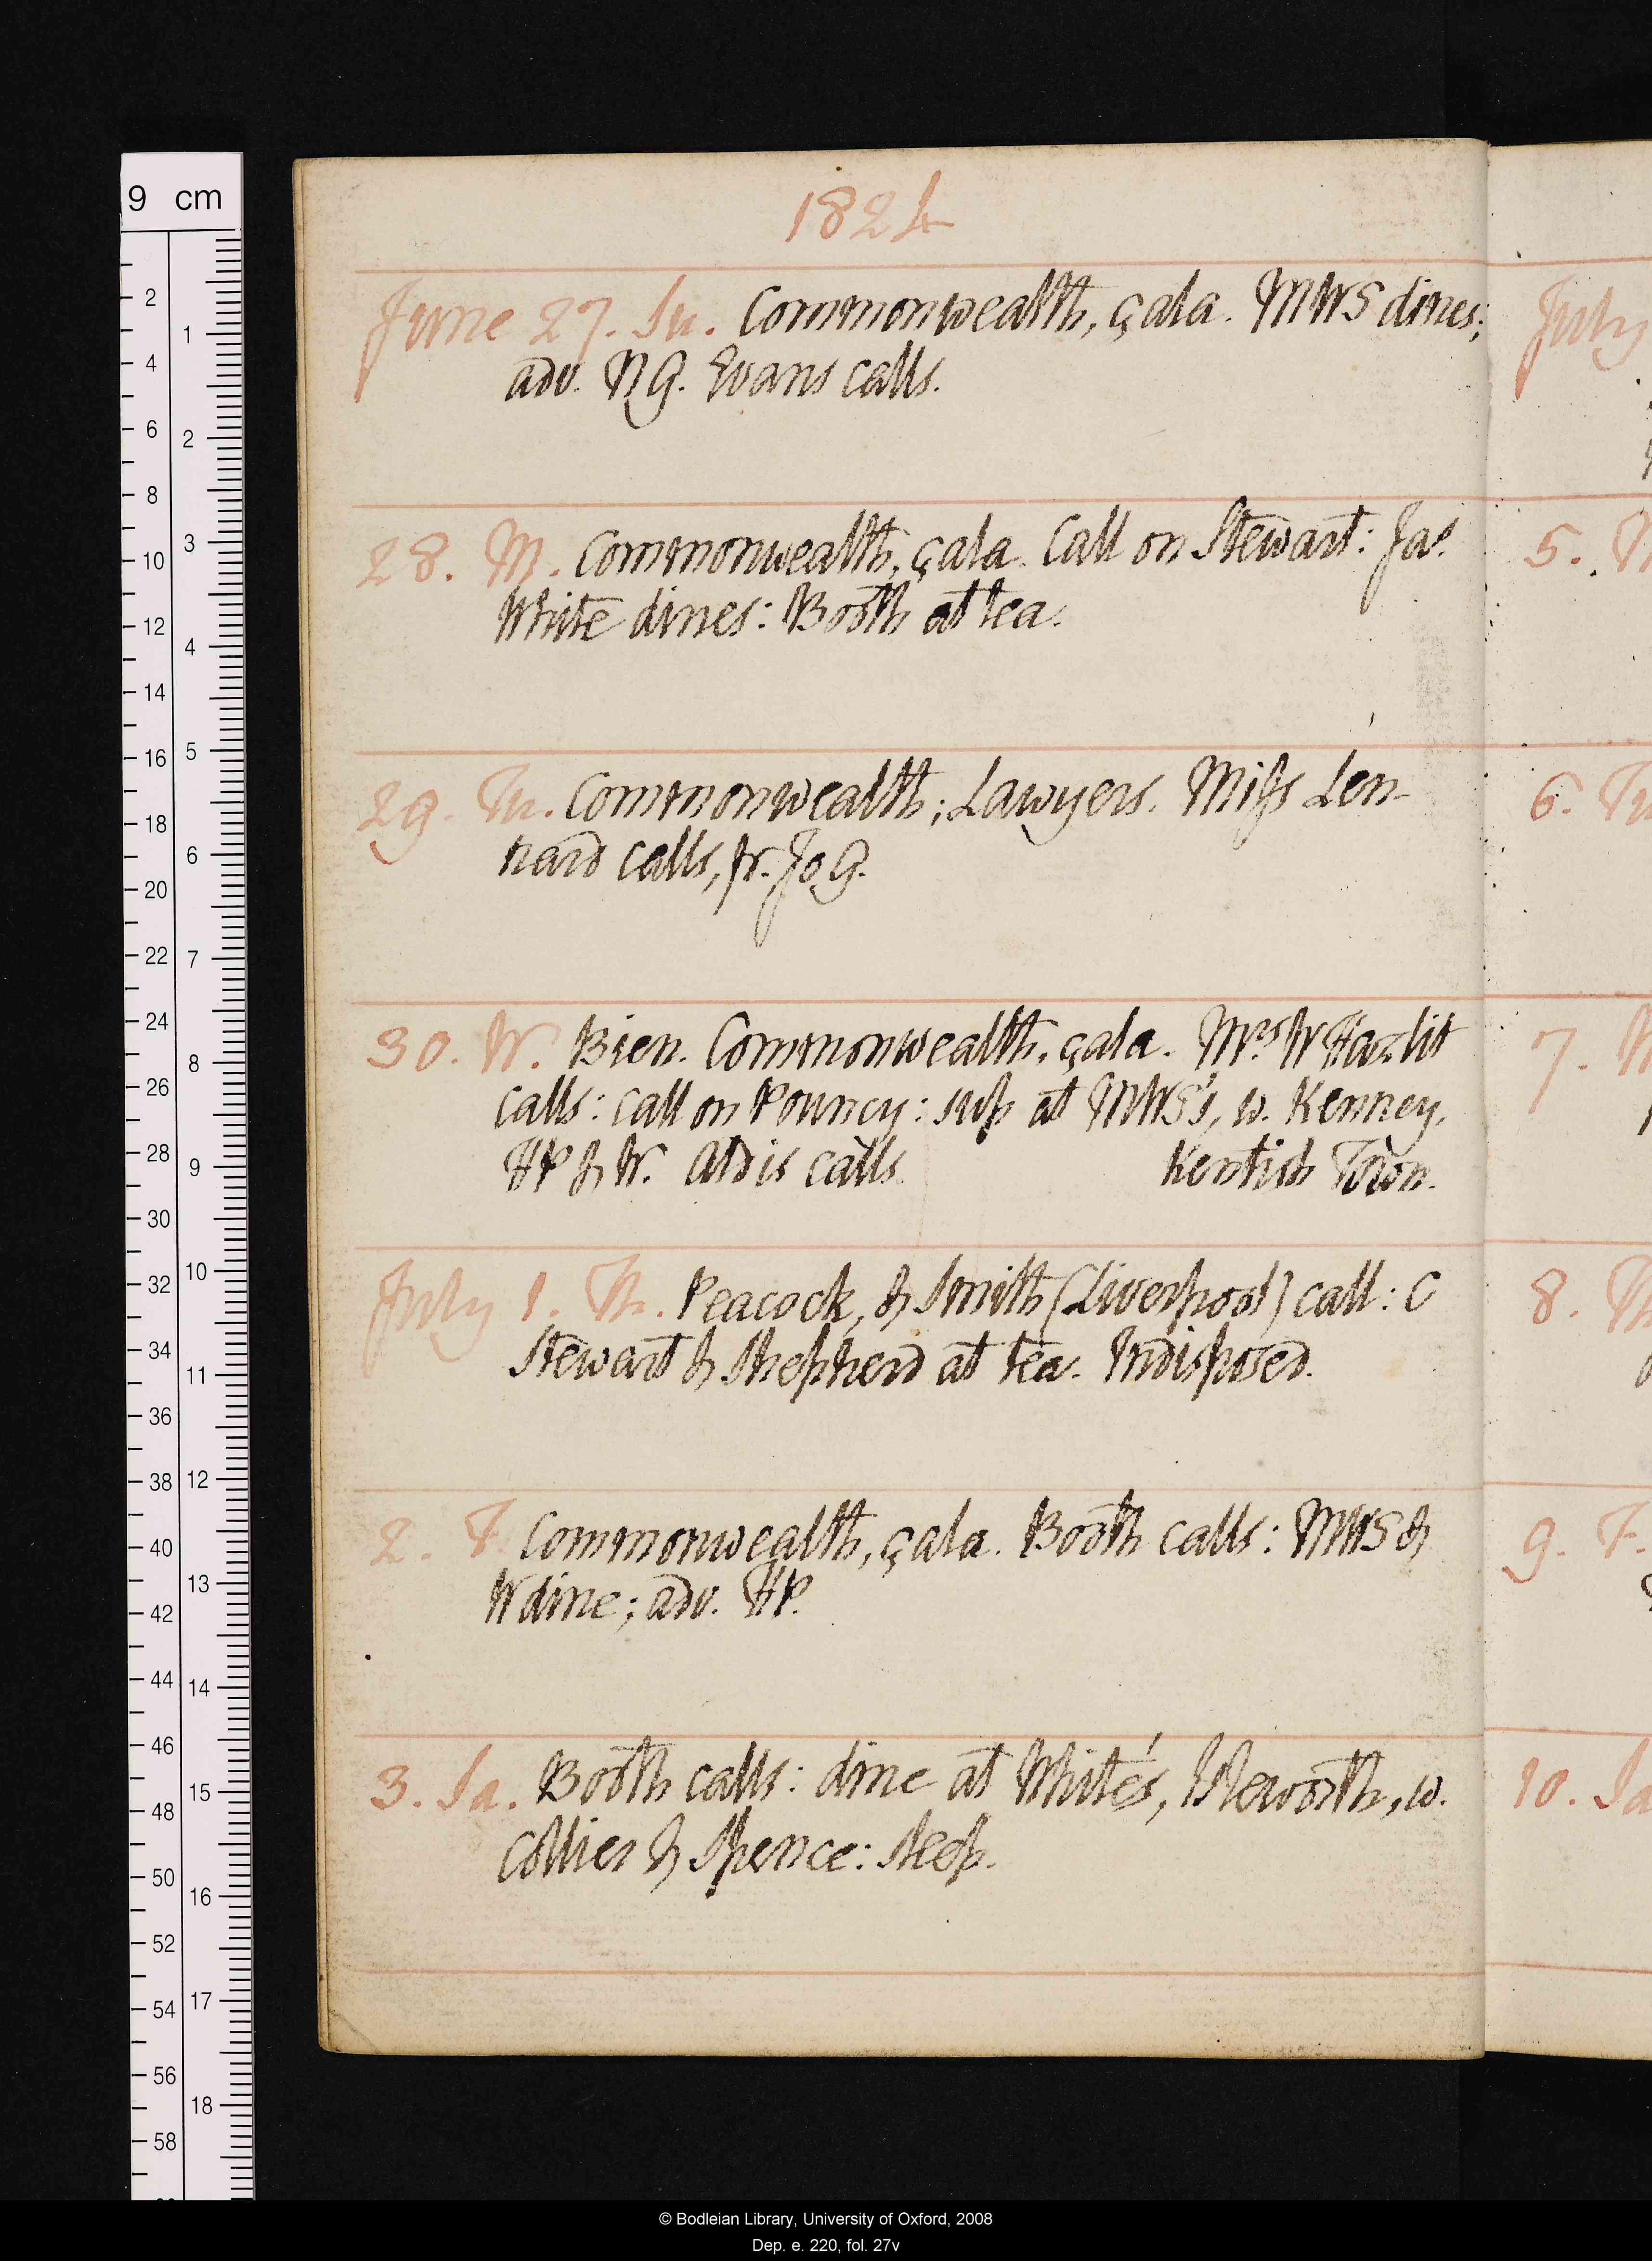 1824
June 27. Su. Commonwealth, çala. MWS dines;
adv. N G. Evans calls.
28. M. Commonwealth, çala. Call on Stewart: Jas.
White dines: Booth at tea.
29. Tu. Commonwealth; Lawyers. Miss Len-
nard calls, fr. Jo G.
30. W. Bien. Commonwealth, çala. Mrs W Hazlit
calls: call on Pouncy: sup at MWS's, w. Kenney,
HP & W. Aldis calls. Kentish Town.
July 1. Th. Peacock, & Smith (Liverpool) call: C
Stewart & Shepherd at tea. Indisposed.
2. F. Commonwealth, çala. Booth calls: MWS &
W dine; adv. HP.
3. Sa. Booth calls: dine at White's, Isleworth, w.
Collier & Spence: sleep.
July
5.
6. Tu
7.
8. Th
9. F.
10. Sa
9 cm
2
4
6
8
10
12
14
16
18
20
22
24
26
28
30
32
34
36
38
40
42
44
46
48
50
52
54
56
58
1
2
3
4
5
6
7
8
9
10
11
12
13
14
15
16
17
18
© Bodleian Library, University of Oxford, 2008
Dep. e. 220, fol. 27v